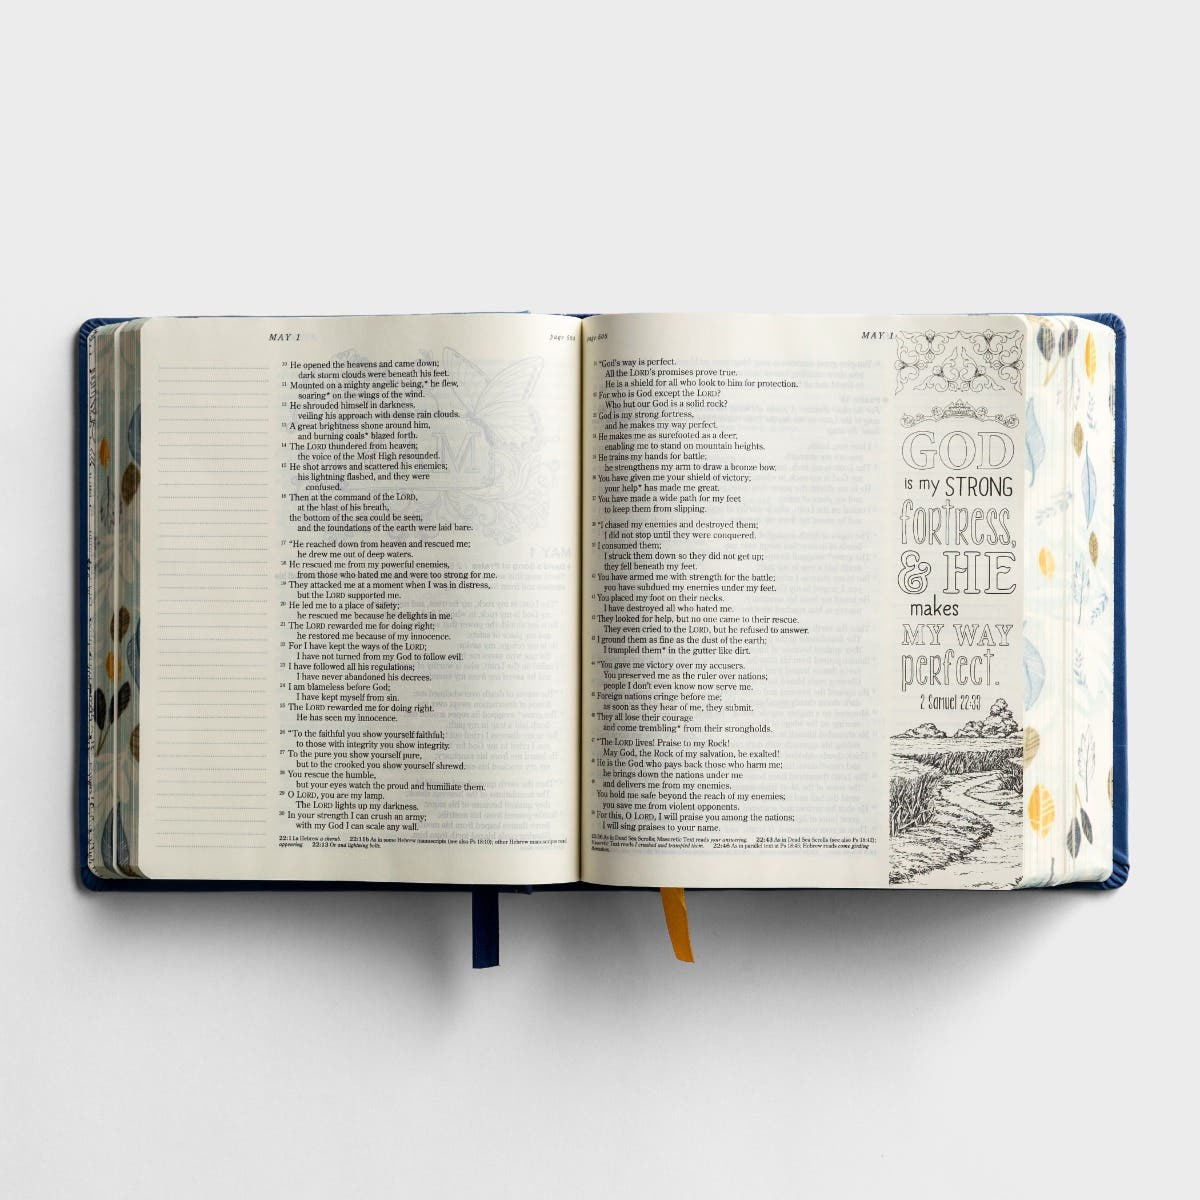 MAY 1
10 He opened the heavens and came down;
dark storm clouds were beneath his feet.
11 Mounted on a mighty angelic being,* he flew,
soaring* on the wings of the wind.
12 He shrouded himself in darkness,
veiling his approach with dense rain clouds.
13 A great brightness shone around him,
and burning coals* blazed forth.
14 The LORD thundered from heaven;
the voice of the Most High resounded.
15 He shot arrows and scattered his enemies;
his lightning flashed, and they were
confused.
16 Then at the command of the LORD,
at the blast of his breath,
the bottom of the sea could be seen,
and the foundations of the earth were laid bare.
17 “He reached down from heaven and rescued me;
he drew me out of deep waters.
18 He rescued me from my powerful enemies,
from those who hated me and were too strong for me.
19 They attacked me at a moment when I was in distress,
but the LORD supported me.
20 He led me to a place of safety;
he rescued me because he delights in me.
21 The LORD rewarded me for doing right;
he restored me because of my innocence.
22 For I have kept the ways of the LORD;
I have not turned from my God to follow evil.
23 I have followed all his regulations;
I have never abandoned his decrees.
24 I am blameless before God;
I have kept myself from sin.
25 The LORD rewarded me for doing right.
He has seen my innocence.
26 “To the faithful you show yourself faithful;
to those with integrity you show integrity.
27 To the pure you show yourself pure,
but to the crooked you show yourself shrewd.
28 You rescue the humble,
but your eyes watch the proud and humiliate them.
29 O LORD, you are my lamp.
The LORD lights up my darkness.
30 In your strength I can crush an army;
with my God I can scale any wall.
22:11a Hebrew a cherub. 22:11b As in some Hebrew manuscripts (see also Ps 18:10); other Hebrew manuscripts read
appearing. 22:13 Or and lightning bolts.
MAY 1
“God's way is perfect.
All the LORD's promises prove true.
He is a shield for all who look to him for protection.
For who is God except the LORD?
Who but our God is a solid rock?
God is my strong fortress,
and he makes my way perfect.
He makes me as surefooted as a deer,
enabling me to stand on mountain heights.
He trains my hands for battle;
he strengthens my arm to draw a bronze bow.
You have given me your shield of victory;
your help* has made me great.
You have made a wide path for my feet
to keep them from slipping.
“I chased my enemies and destroyed them;
I did not stop until they were conquered.
I consumed them;
I struck them down so they did not get up;
they fell beneath my feet.
You have armed me with strength for the battle;
you have subdued my enemies under my feet.
You placed my foot on their necks.
I have destroyed all who hated me.
They looked for help, but no one came to their rescue.
They even cried to the LORD, but he refused to answer.
I ground them as fine as the dust of the earth;
I trampled them* in the gutter like dirt.
“You gave me victory over my accusers.
You preserved me as the ruler over nations;
people I don't even know now serve me.
Foreign nations cringe before me;
as soon as they hear of me, they submit.
They all lose their courage
and come trembling* from their strongholds.
“The LORD lives! Praise to my Rock!
May God, the Rock of my salvation, be exalted!
He is the God who pays back those who harm me;
he brings down the nations under me
and delivers me from my enemies.
You hold me safe beyond the reach of my enemies;
you save me from violent opponents.
For this, O LORD, I will praise you among the nations;
I will sing praises to your name.
As in Dead Sea Scrolls; Masoretic Text reads your answering. 22:43 As in Dead Sea Scrolls (see also Ps 18:42);
Masoretic Text reads I crushed and trampled them. 22:46 As in parallel text at Ps 18:45; Hebrew reads come girding
themselves.
GOD
is my STRONG
fortress,
& HE
makes
MY WAY
perfect.
2 Samuel 22:33